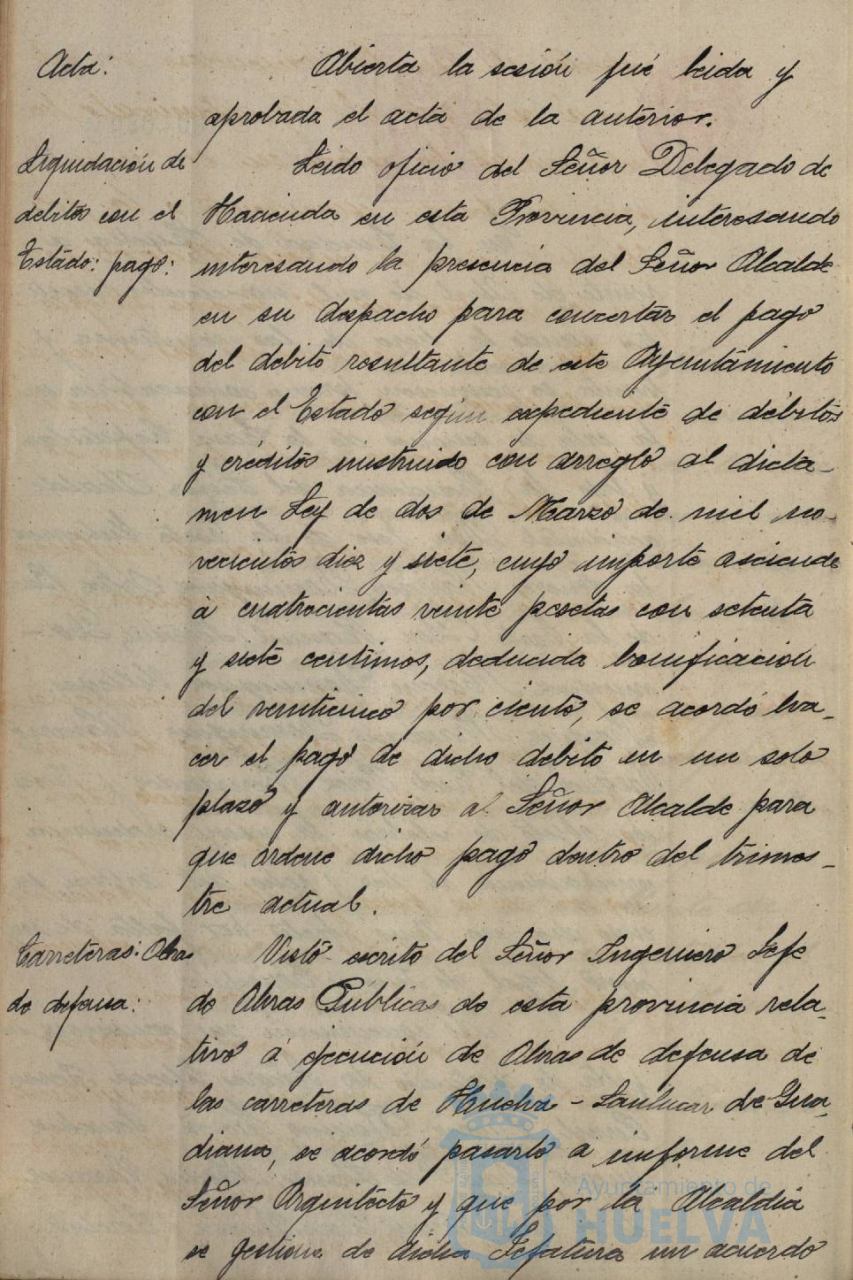 Acta:
Abierta la sesión fué leida y
aprobada el acta de la anterior.
Liquidación de
debitos con el
Estado: pago:
Leido oficio del Señor Delegado de
Hacienda en esta Provincia, interesando
interesando la presencia del Señor Alcalde
en su despacho para concertar el pago
del debito resultante de este Ayuntamiento
con el Estado según expediente de débitos
y créditos instruido con arreglo al dicta-
men Ley de dos de Marzo de mil no-
vecientos diez y siete, cuyo importe asciende
á cuatrocientas veinte pesetas con setenta
y siete centimos, deducida bonificación
del veinticinco por ciento, se acordó ha-
cer el pago de dicho debito en un solo
plazo y autorizar al Señor Alcalde para
que ordene dicho pago dentro del trimes-
tre actual.
Carreteras: Obras
de defensa:
Visto escrito del Señor Ingeniero Jefe
de Obras Públicas de esta provincia rela-
tivo á ejecución de Obras de defensa de
las carreteras de Huelva - Sanlucar de Gua-
diana, se acordó pasarlo a informe del
Señor Arquitecto y que por la Alcaldia
se gestione de dicha Jefatura un acuerdo
Ayuntamiento de
HUELVA